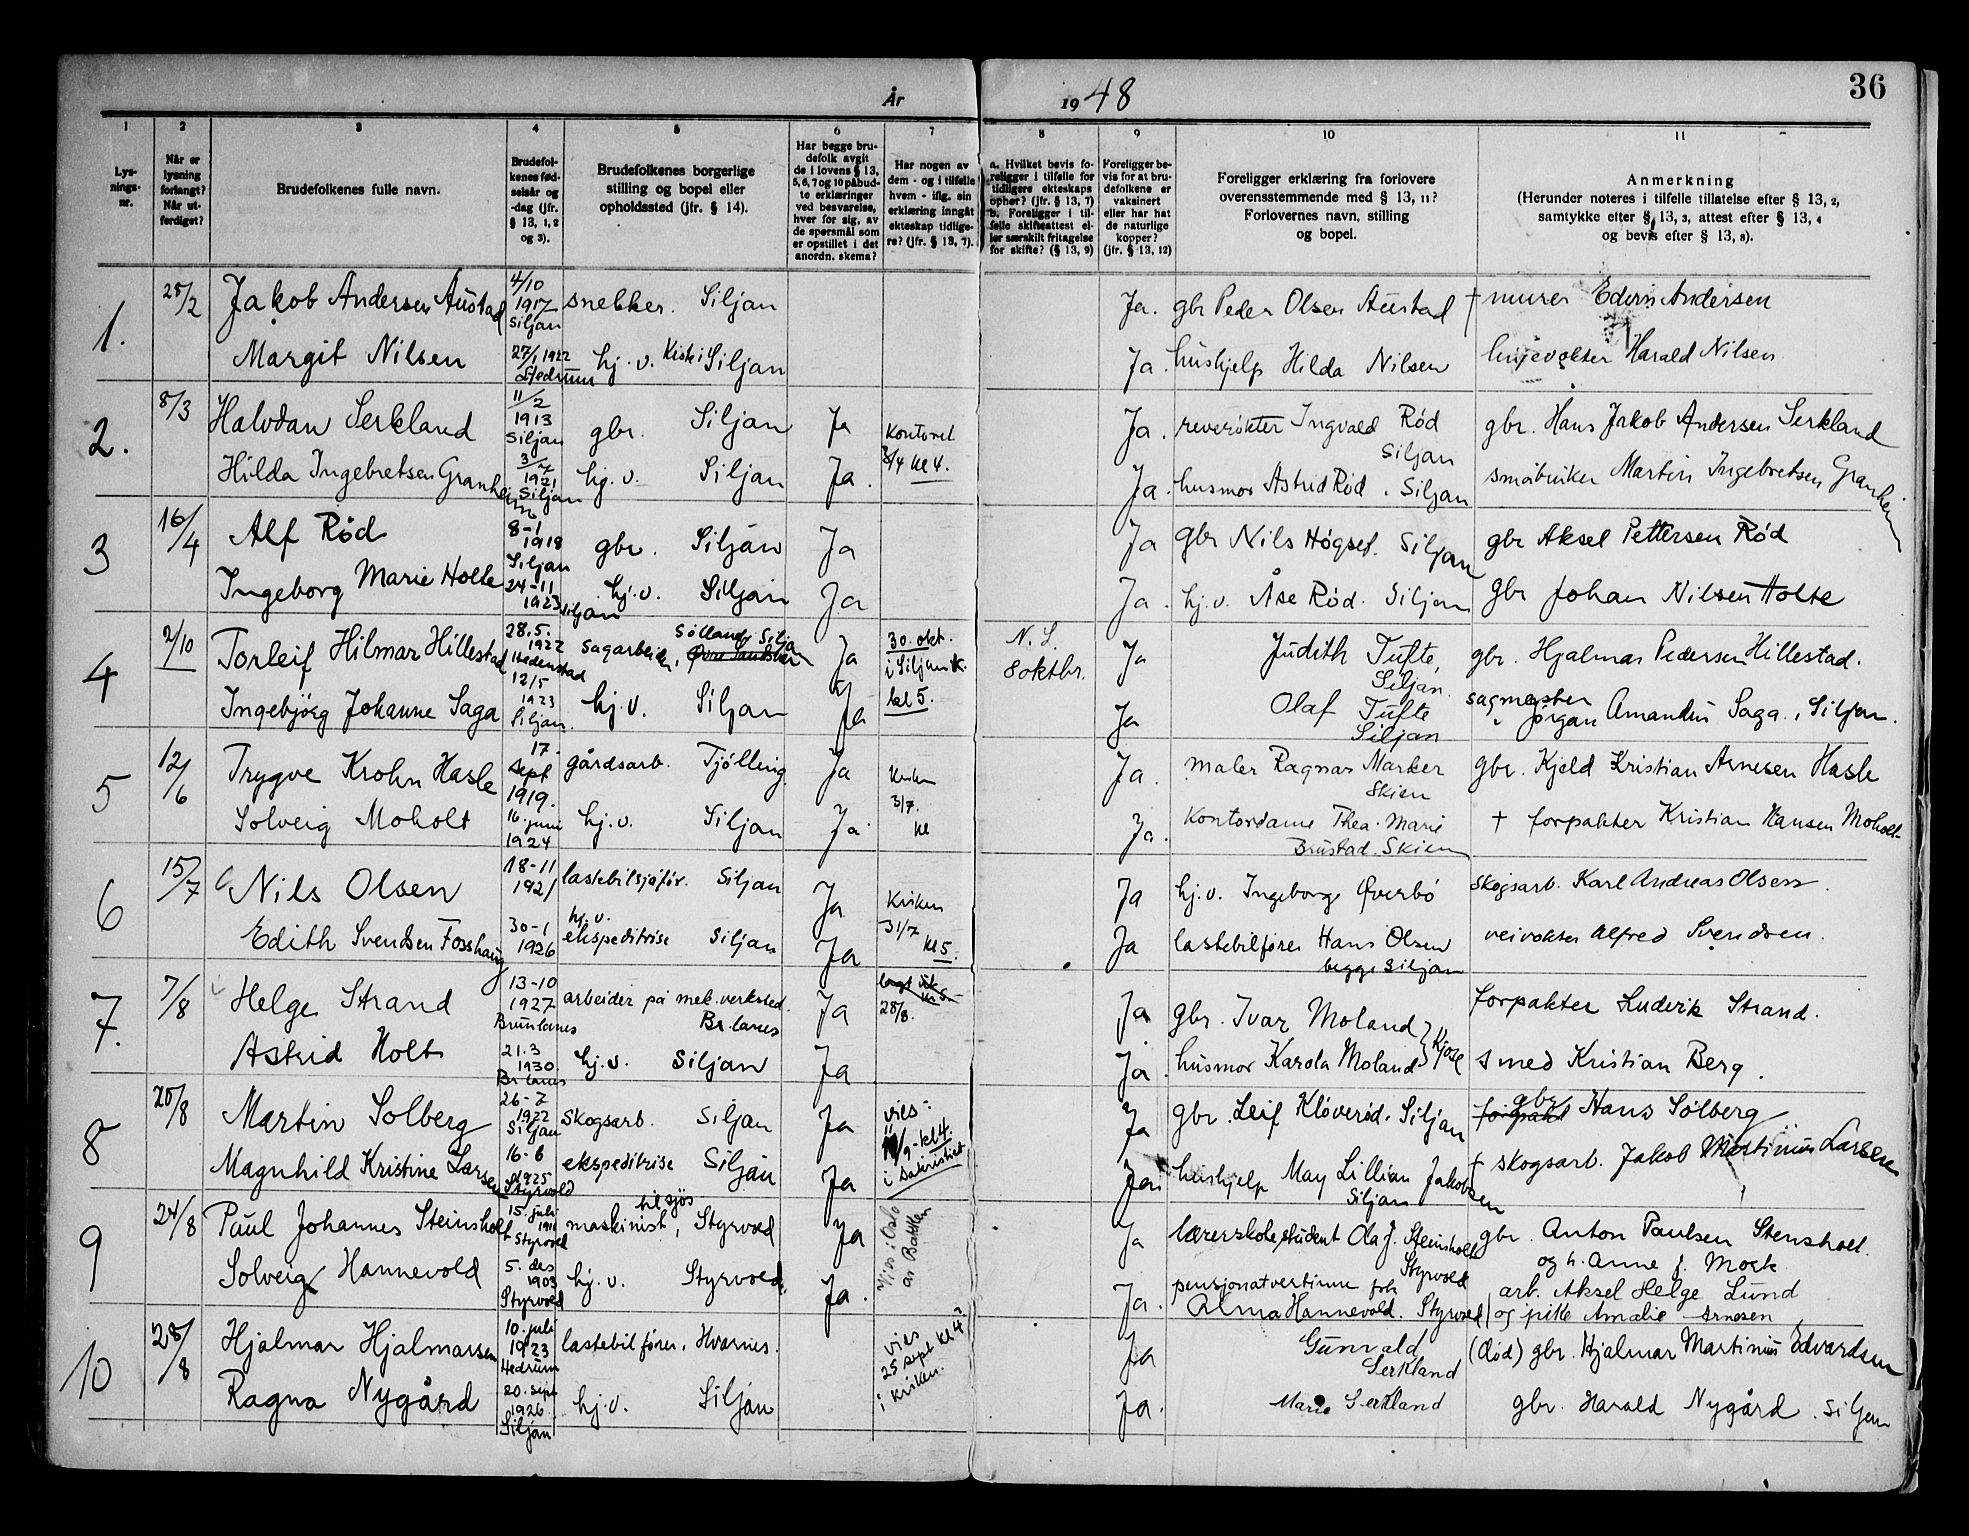 År 1948
36
1 2 3 4 5 6 7 8 9 10 11
Lysnings-nr.
Når er lysning forlangt? Når utferdiget?
Brudefolkenes fulle navn.
Brudefolkenes fødselsår og -dag (jfr. § 13, 1, 2 og 3).
Brudefolkenes borgerlige stilling og bopel eller opholdssted (jfr. § 14).
Har begge brudefolk avgit de i lovens § 13, 5, 6, 7 og 10 påbudte erklæringer ved besvarelse, hver for sig, av de spørsmål som er opstillet i det anordn. skema?
Har nogen av dem - og i tilfelle hvem - iflg. sin erklæring inngåt ekteskap tidligere? (jfr. § 13, 7).
a. Hvilket bevis foreligger i tilfelle for tidligere ekteskaps ophør? (jfr. § 13, 7) b. Foreligger i tilfelle skifteattest eller særskilt fritagelse for skifte? (§ 13, 9)
Foreligger bevis for at brudefolkene er vaksinert eller har hat de naturlige kopper? (jfr. § 13, 12)
Foreligger erklæring fra forlovere overensstemmende med § 13, 11? Forlovernes navn, stilling og bopel.
Anmerkning (Herunder noteres i tilfelle tillatelse efter § 13, 2, samtykke efter § 13, 3, attest efter § 13, 4 og bevis efter § 13, 8).
1. 25/2 Jakob Andersen Austad 4/10 1917 Siljan snekker. Siljan Ja. gbr Peder Olsen Austad † murer Edvin Andersen
Margit Nilsen 27/1 1922 Hedrum hj.v. Siljan Ja. hushjelp Hilda Nilsen linjevokter Harald Nilsen
2. 8/3 Halvdan Serkland 11/2 1913 Siljan gbr. Siljan Ja Kontoret 3/4 kl 4. Ja. revevokter Ingvald Rød Siljan gbr. Hans Jakob Andersen Serkland
Hilda Ingebretsen Granheim 3/7 1921 Siljan hj.v. Siljan Ja. Ja. husmor Astrid Rød. Siljan småbruker Martin Ingebretsen Granheim
3 16/4 Alf Rød 8-1 1918 Siljan gbr. Siljan Ja Ja gbr Nils Høgset. Siljan gbr Aksel Pettersen Rød
Ingeborg Marie Holte 24-11 1923 Siljan hj.v. Siljan Ja Ja. hj.v. Åse Rød. Siljan gbr Johan Nilsen Holte
4 2/10 Torleif Hilmar Hillestad 28.5. 1922 Hedenstad sagarbeider, Sølland Siljan Ja 30. okt. i Siljan k. kl 5. N.S. 8 oktbr. Ja Judith Tufte, Siljan. gbr. Hjalmar Pedersen Hillestad.
Ingebjörg Johanne Saga 12/5 1923 Siljan. hj.v. Siljan Ja Ja Olaf Tufte Siljan sagmester Jörgan Amandus Saga, Siljan.
5 12/6 Trygve Krohn Hasle 17. sept 1919. gårdsarb. Tjölling. Ja Kirken 3/7. kl Ja. maler Ragnar Marker Skien gbr. Kjeld Kristian Arnesen Hasle
Solveig Moholt 16. juni 1924 hj.v. Siljan Ja Ja. Kontordame Thea Marie Brustad. Skien † forpakter Kristian Hansen Moholt
6 15/7 Nils Olsen 18-11 1921 lastebilsjåför. Siljan Ja Kirken 31/7 kl 5. Ja hj.v. Ingeborg Øverbö skogsarb. Karl Andreas Olsen.
Edith Svendsen Fosshaug 30-1 1926 hj.v. ekspeditrise Siljan Ja Ja lastebilfører Hans Olsen begge Siljan veivokter Alfred Svendsen.
7. 7/8 Helge Strand 13-10 1927 Brunlanes arbeider på mek. verksted. Br.lanes Ja 28/8. Ja gbr. Ivar Moland } Kjose forpakter Ludvik Strand.
Astrid Holt 21.3 1930. Br lanes hj.v. Siljan Ja Ja. husmor Karola Moland smed Kristian Berg.
8 20/8 Martin Solberg 26-7 1922 Siljan skogsarb. Siljan Ja vies: 11/9 - kl 4. i Sakristiet Ja gbr. Leif Kløverød. Siljan forpakt gbr Hans Solberg
Magnhild Kristine Larsen 16-6 1925 Styrvold ekspeditrise Siljan Ja Ja. hushjelp May Lillian Jakobsen Siljan † skogsarb. Jakob Martinius Larsen
9 24/8 Paul Johannes Steinsholt 15. juli 1911 Styrvold maskinist, tilsjös Styrvold Ja Vies i Oslo Ja lærerskolestudent Ola J. Steinsholt Styrvold gbr. Anton Paulsen Stensholt. og h. Anne J. Moek
Solveig Hannevold 5. des 1903 Styrvold hj.v. Styrvold. Ja. Ja. pensjonatvertinne frk Alma Hannevold. Styrvold arb. Aksel Helge Lund og pike Amalie Arnesen
10 28/8 Hjalmar Hjalmarsen 10. juli 1923 Hedrum lastebilfører. Hvarnes. vies 25 sept kl 4 i kirken. Ja Gunvald Serkland (död) gbr. Hjalmar Martinius Edvardsen
Ragna Nygård 20. sept 1926 Siljan hj.v. Siljan Ja. Marie Serkland gbr. Harald Nygård. Siljan